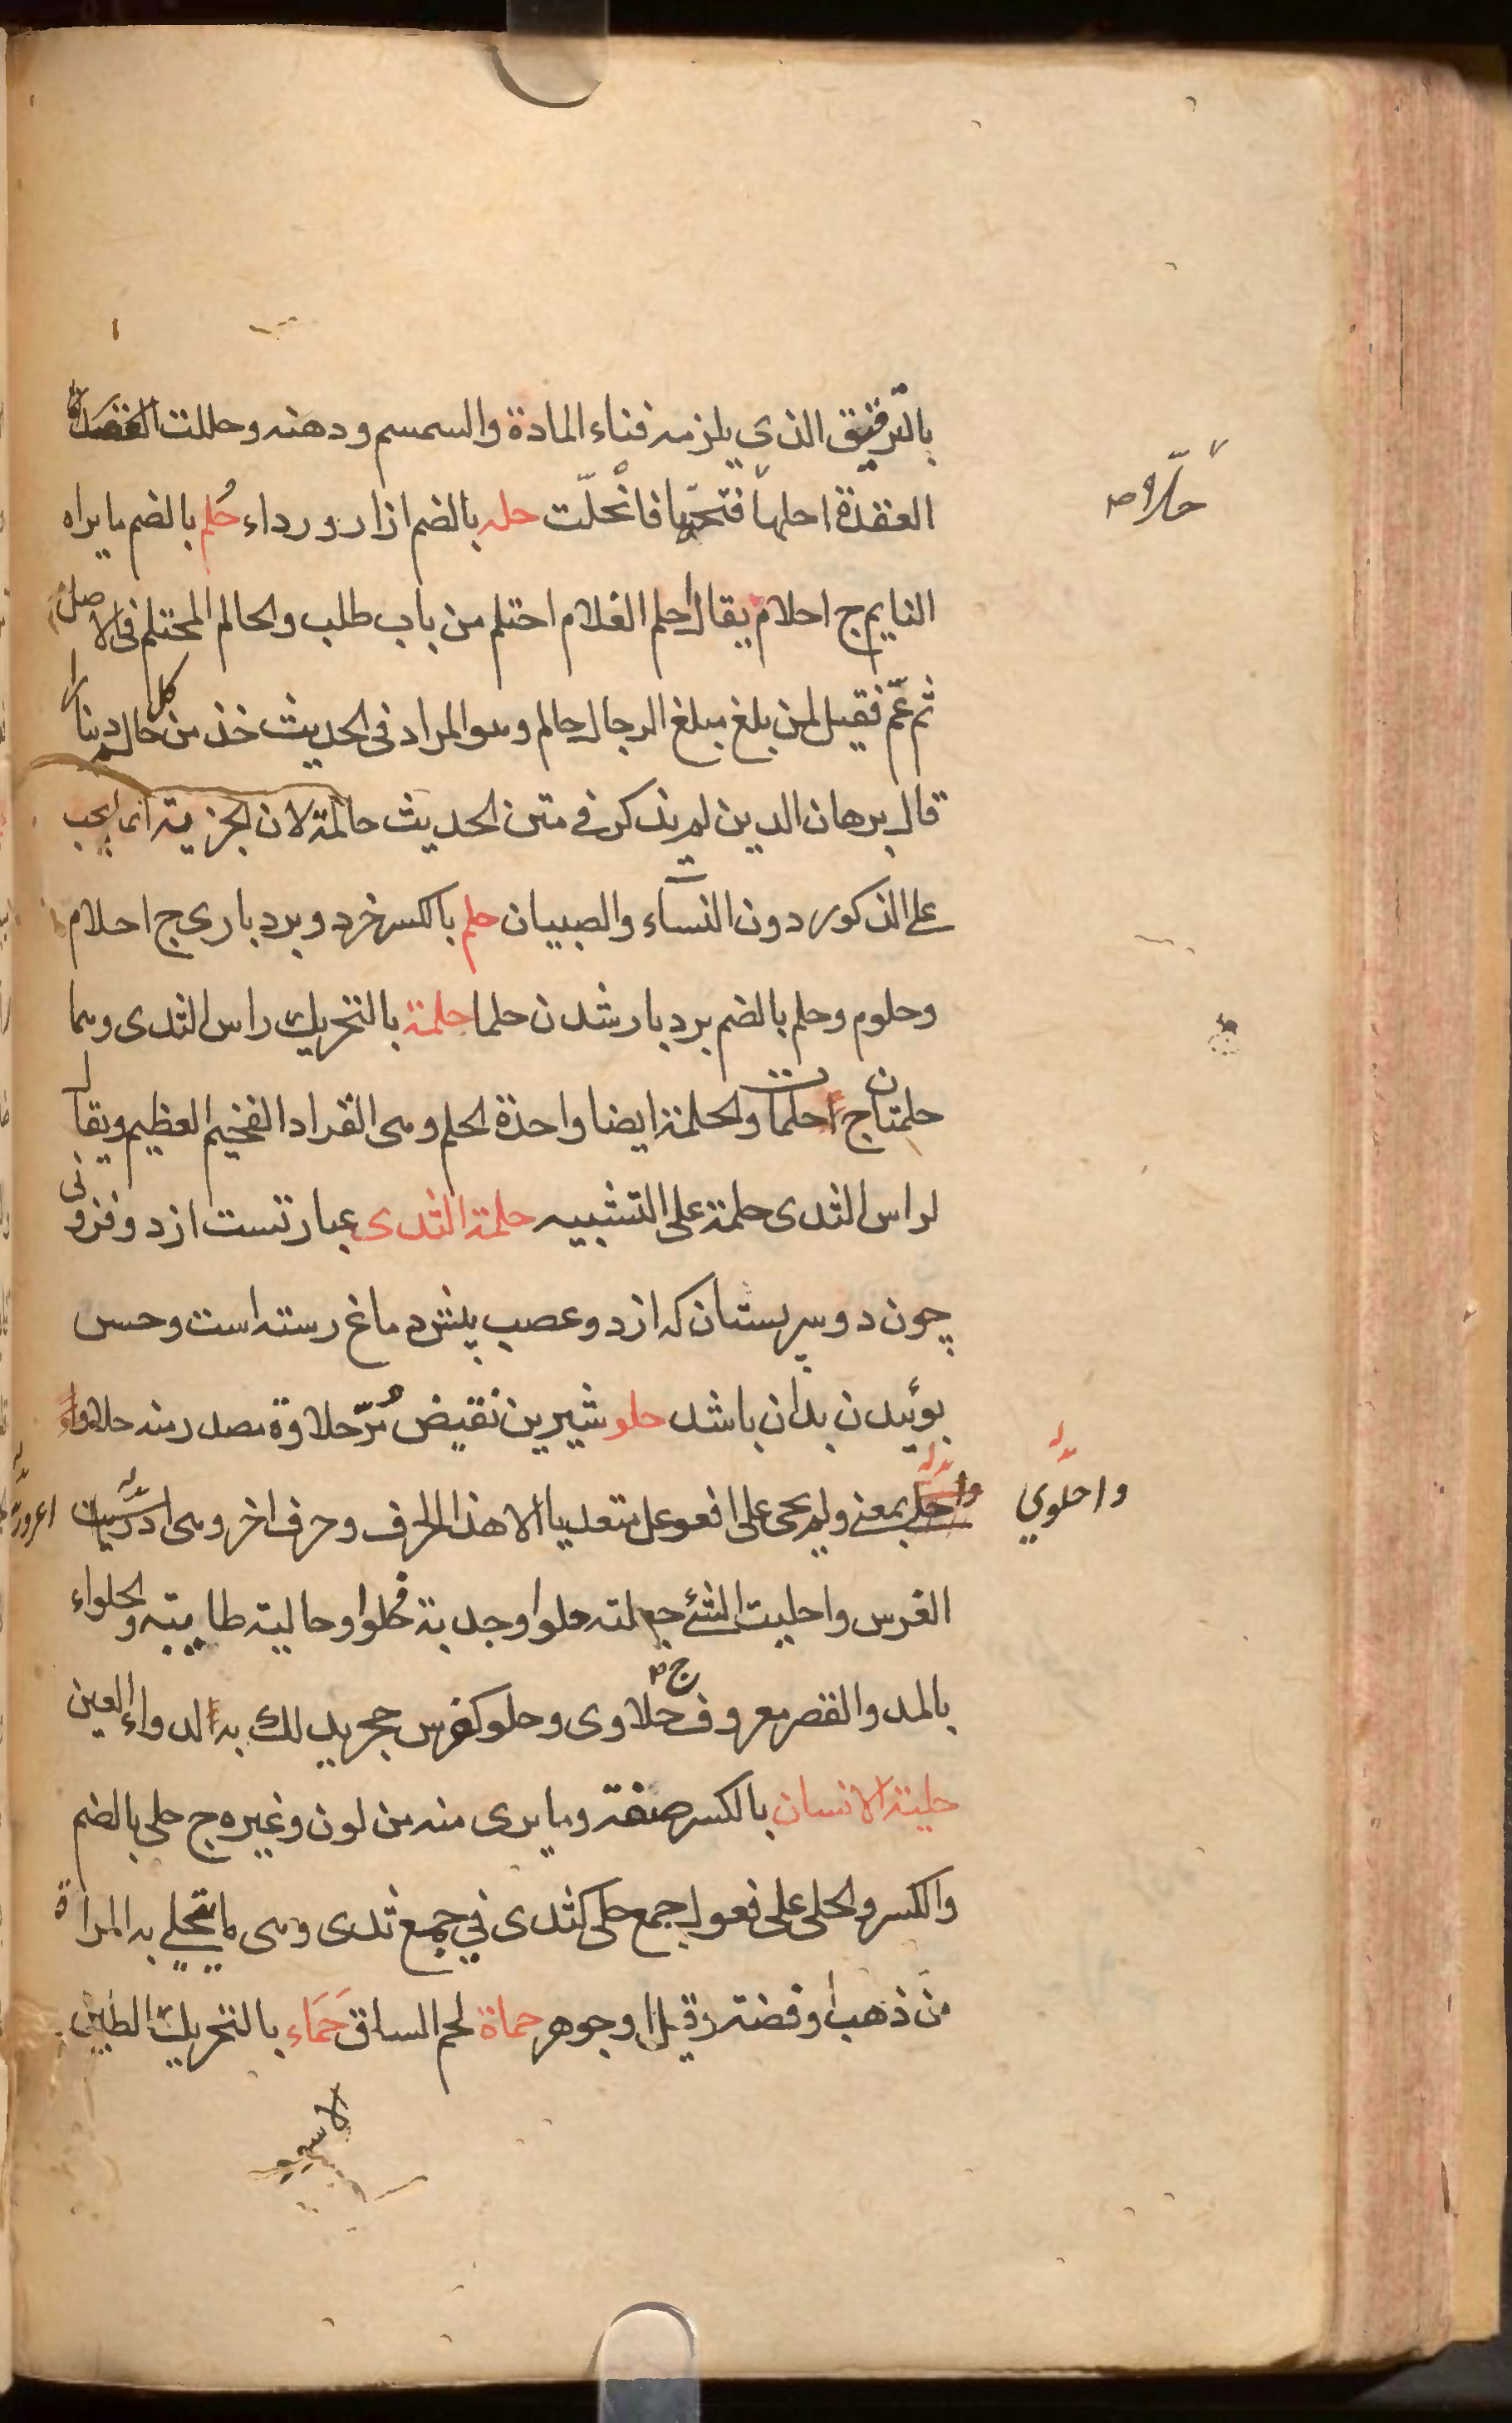 بالترقيق الذي يلزمه فناء المادة والسمسم ودهنه وحللت
حلا ص
العقدة احلها فتحتها فانحلّت حله بالضم ازار ورداء حُلم بالضم ما يراه
النايم ج احلام يقال حلم الغلام احتلم من باب طلب والحالم المحتلم في الاصل
ثم عمّ فقيل لمن بلغ مبلغ الرجال حالم وهو المراد في الحديث خذ من كل حالم دينارا
قال برهان الدين لم يذكر في متن الحديث حالمة لان الجزية انما يجب
على الذكور دون النساء والصبيان حلم بالكسر خرد و بردباری ج احلام
وحلوم وحلم بالضم بردبار شدن حلما حلمة بالتحريك راس الثدى وهما
حلمتان ج حلمات والحلمة ايضا واحدة الحلم وهى القراد الضخيم العظيم ويقال
لراس الثدى حلمة على التشبيه حلمة الثدى عبارتست از دو فزونى
چون دو سر پستان كه از دو عصب پيش دماغ رسته است وحس
بوئيدن بدان باشد حلو شيرين نقيض مُرّ حلاوة مصدر منه حلا
واحلولي
بمعنى ولم يجى على افعوعل متعديا الا هذا الحرف وحرف اخر وهى
الفرس واحليت الشئ جعلته حلوا وجدته حلوا وحاليته طايبته والحلواء
بالمد والقصر معروف ج حلاوى وحلو كغرس حجر يدلك به الدواء العين
حلية الانسان بالكسر صفته وما يرى منه من لون وغيره ج حلى بالضم
والكسر والحلى على فعول جمع حلى كثدى في جمع ثدى وهى ما يتحلى به المراة
من ذهب او فضة وقيل او جوهر حماة لحم الساق حَمَاء بالتحريك الطين
الاسود